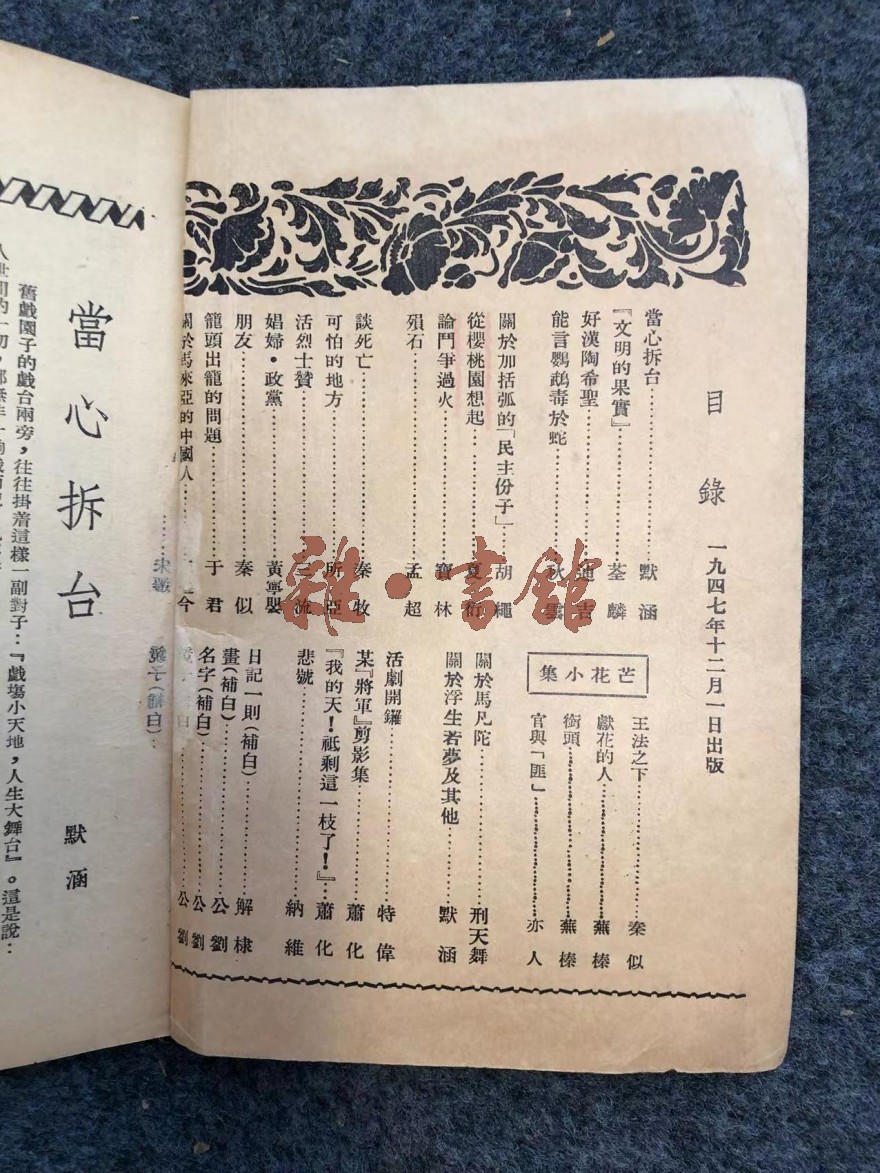 目錄
一九四七年十二月一日出版
當心拆台………默涵
『文明的果實』………荃麟
好漢陶希聖………迪吉
能言鸚鵡毒於蛇………秋雲
關於加括弧的「民主份子」…胡繩
從櫻桃園想起………夏衍
論鬥爭過火………寶林
殞石………孟超
談死亡………秦牧
可怕的地方………所亞
活烈士贊………三流
娼婦·政黨………黃寧嬰
朋友………秦似
籠頭出籠的問題………于君
關於馬來亞的中國人………今
芒花小集
王法之下………秦似
獻花的人………蕪榛
街頭………蕪榛
官與「匪」………亦人
關於馬凡陀………刑天舞
關於浮生若夢及其他………默涵
活劇開鑼………特偉
某『將軍』剪影集………蕭化
『我的天！祗剩這一枝了！』…蕭化
悲號………納維
日記一則(補白)………解棣
畫(補白)………公劉
名字(補白)………公劉
公劉
當心拆台
默涵
舊戲園子的戲台兩旁，往往掛着這樣一副對子：『戲塲小天地，人生大舞台』。這是說：
雜·書館